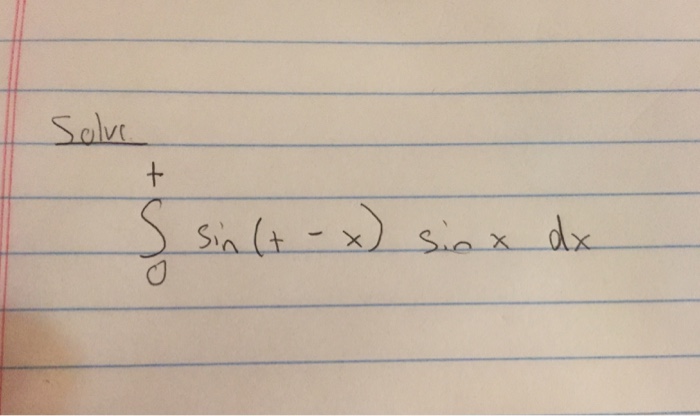 Solve
t
∫ sin(t - x) sin x dx
0